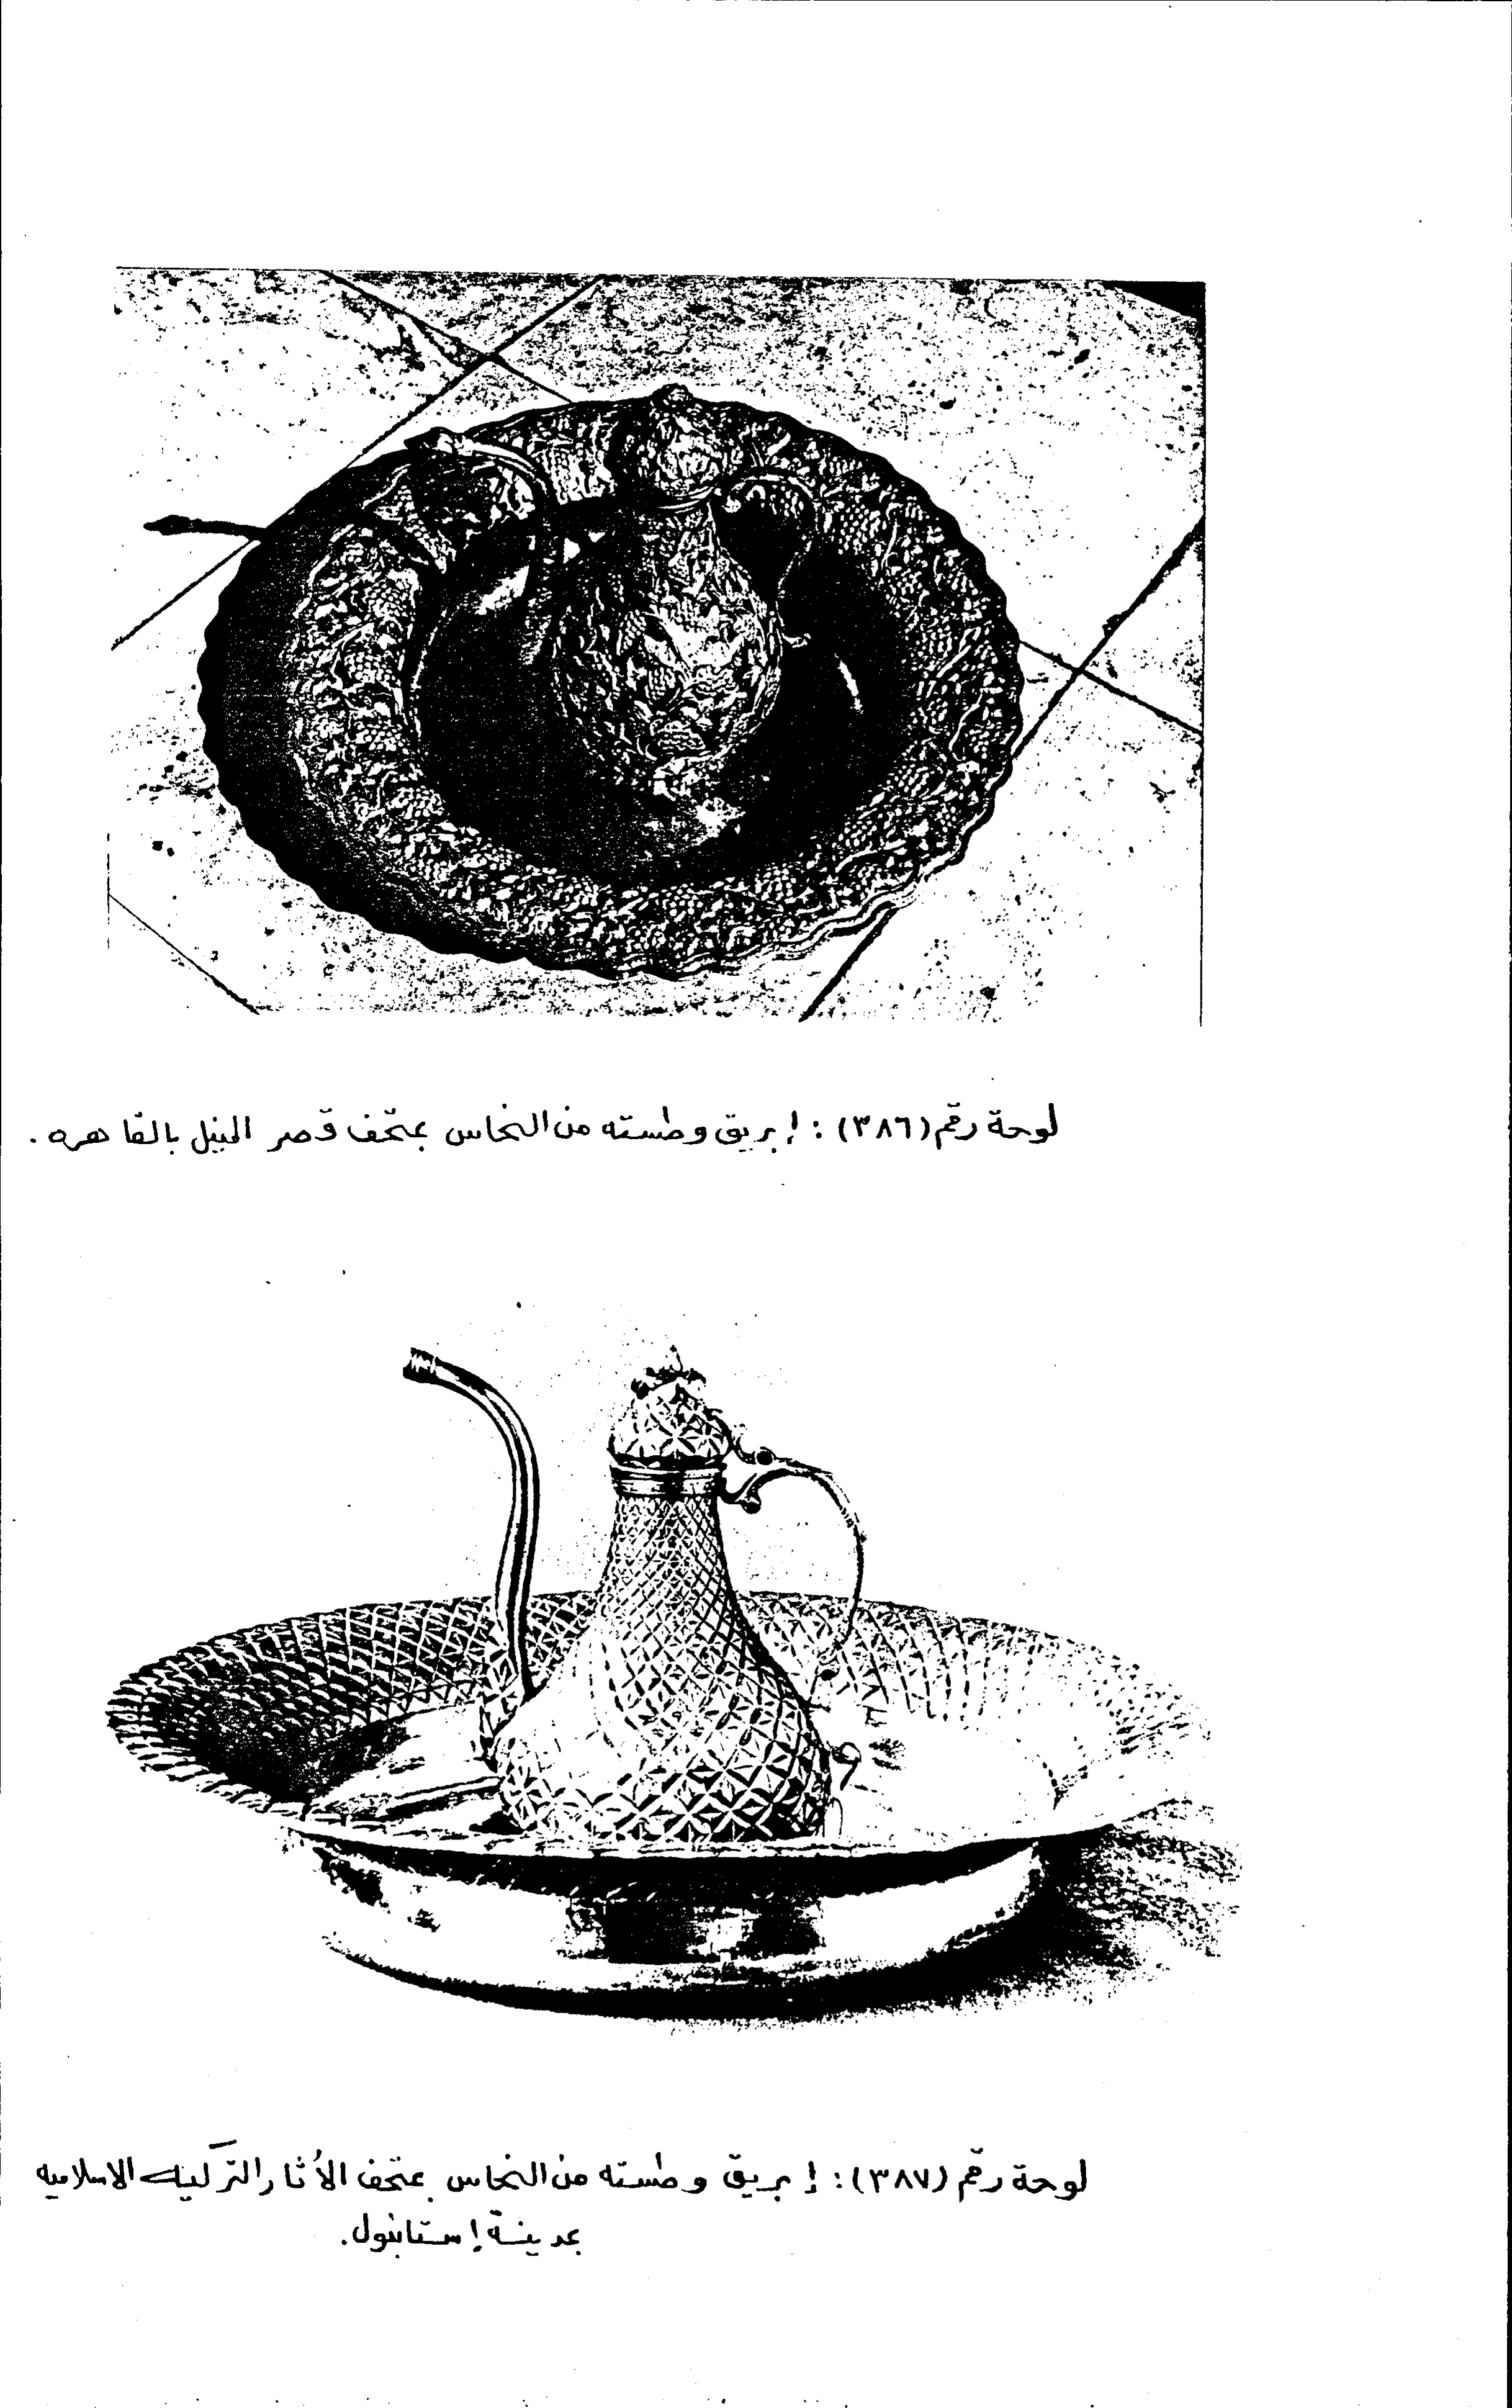 لوحة رقم (٣٨٦) : إبريق وطسته من النحاس بمتحف قصر النيل بالقاهره .
لوحة رقم (٣٨٧) : إبريق وطسته من النحاس بمتحف الأثار التركيه الاسلاميه
بمدينة إستانبول .